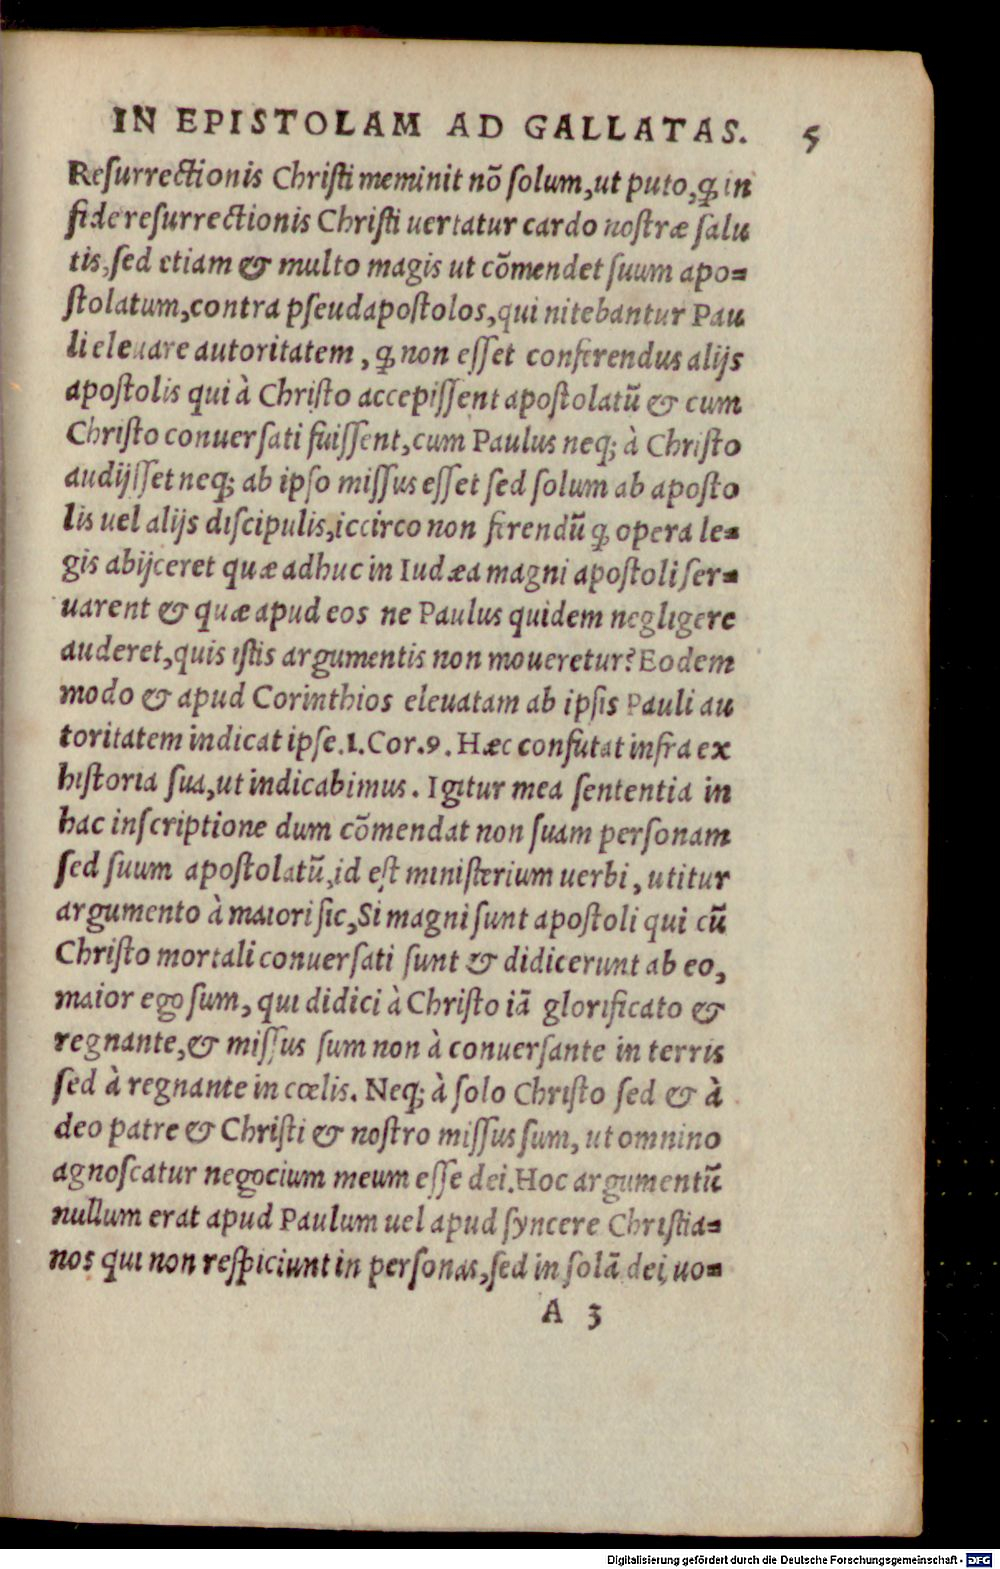 IN EPISTOLAM AD GALLATAS. 5
Resurrectionis Christi meminit nõ solum, ut puto, ꝙ in
fide resurrectionis Christi uertatur cardo nostræ salu
tis, sed etiam & multo magis ut cõmendet suum apo=
stolatum, contra pseudapostolos, qui nitebantur Pau
li eleuare autoritatem, ꝙ non esset conferendus alijs
apostolis qui à Christo accepissent apostolatũ & cum
Christo conuersati fuissent, cum Paulus neq; à Christo
audijsset neq; ab ipso missus esset sed solum ab aposto
lis uel alijs discipulis, iccirco non ferendũ ꝙ opera le=
gis abijceret quæ adhuc in Iudæa magni apostoli ser=
uarent & quæ apud eos ne Paulus quidem negligere
auderet, quis istis argumentis non moueretur? Eodem
modo & apud Corinthios eleuatam ab ipsis Pauli au
toritatem indicat ipse.1.Cor.9. Hæc confutat infra ex
historia sua, ut indicabimus. Igitur mea sententia in
hac inscriptione dum cõmendat non suam personam
sed suum apostolatũ, id est ministerium uerbi, utitur
argumento à maiori sic, Si magni sunt apostoli qui cũ
Christo mortali conuersati sunt & didicerunt ab eo,
maior ego sum, qui didici à Christo iã glorificato &
regnante, & missus sum non à conuersante in terris
sed à regnante in cœlis. Neq; à solo Christo sed & à
deo patre & Christi & nostro missus sum, ut omnino
agnoscatur negocium meum esse dei. Hoc argumentũ
nullum erat apud Paulum uel apud syncere Christia=
nos qui non respiciunt in personas, sed in solã dei uo=
A 3
Digitalisierung gefördert durch die Deutsche Forschungsgemeinschaft - DFG